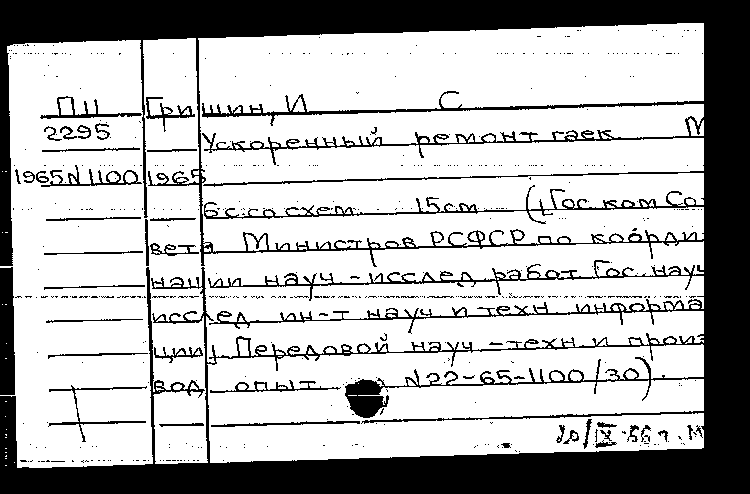 ПII Гришин, И С
2295 Ускоренный ремонт гаек М
1965 N 1100 1965
6 с. со схем 15 см (Гос ком Со-
вета Министров РСФСР по коорди-
нации науч-исслед работ Гос. науч
исслед ин-т науч и техн информа
ции) Передовой науч-техн и произ
вод опыт N 22-65-1100/30).